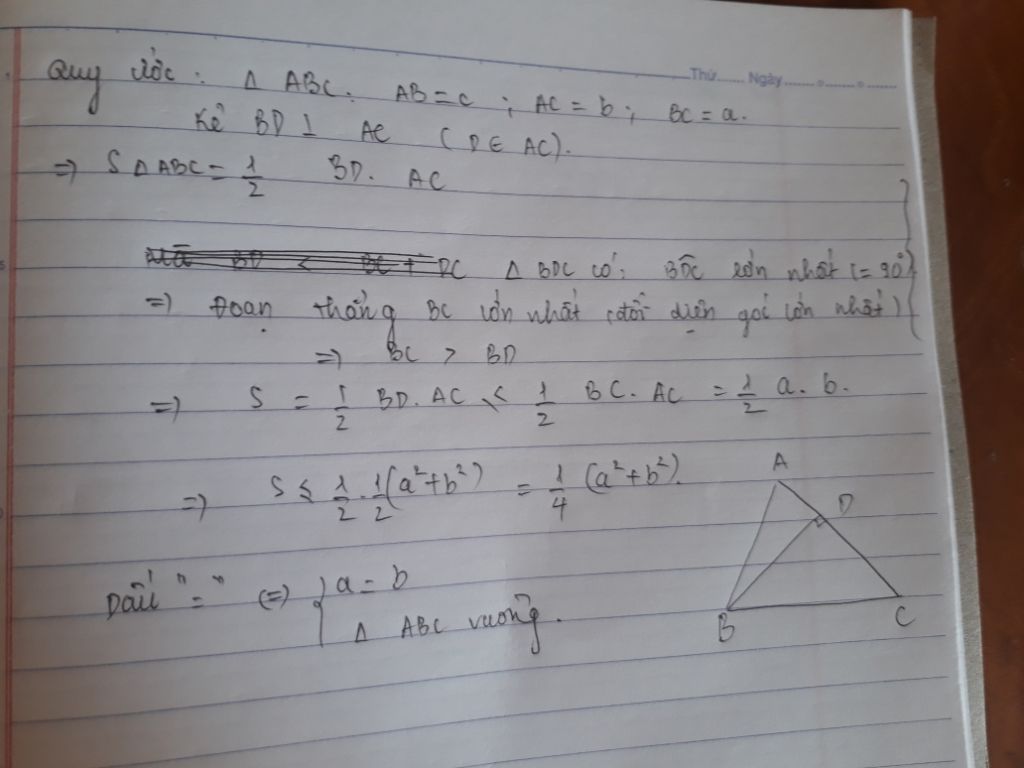 Thứ....... Ngày........ o........ o........
Quy ước : Δ ABC. AB = c ; AC = b ; BC = a.
Kẻ BD ⊥ AC ( D ∈ AC).
=> S Δ ABC = 1/2 BD. AC
Δ BDC có: BDC lớn nhất (= 90°)
=> Đoạn thẳng BC lớn nhất (đối diện góc lớn nhất)
=> BC > BD
=> S = 1/2 BD. AC ≤ 1/2 BC. AC = 1/2 a. b.
=> S ≤ 1/2 . 1/2 (a² + b²) = 1/4 (a² + b²).
Dấu " = " <=> { a = b
Δ ABC vuông.
A
D
B
C